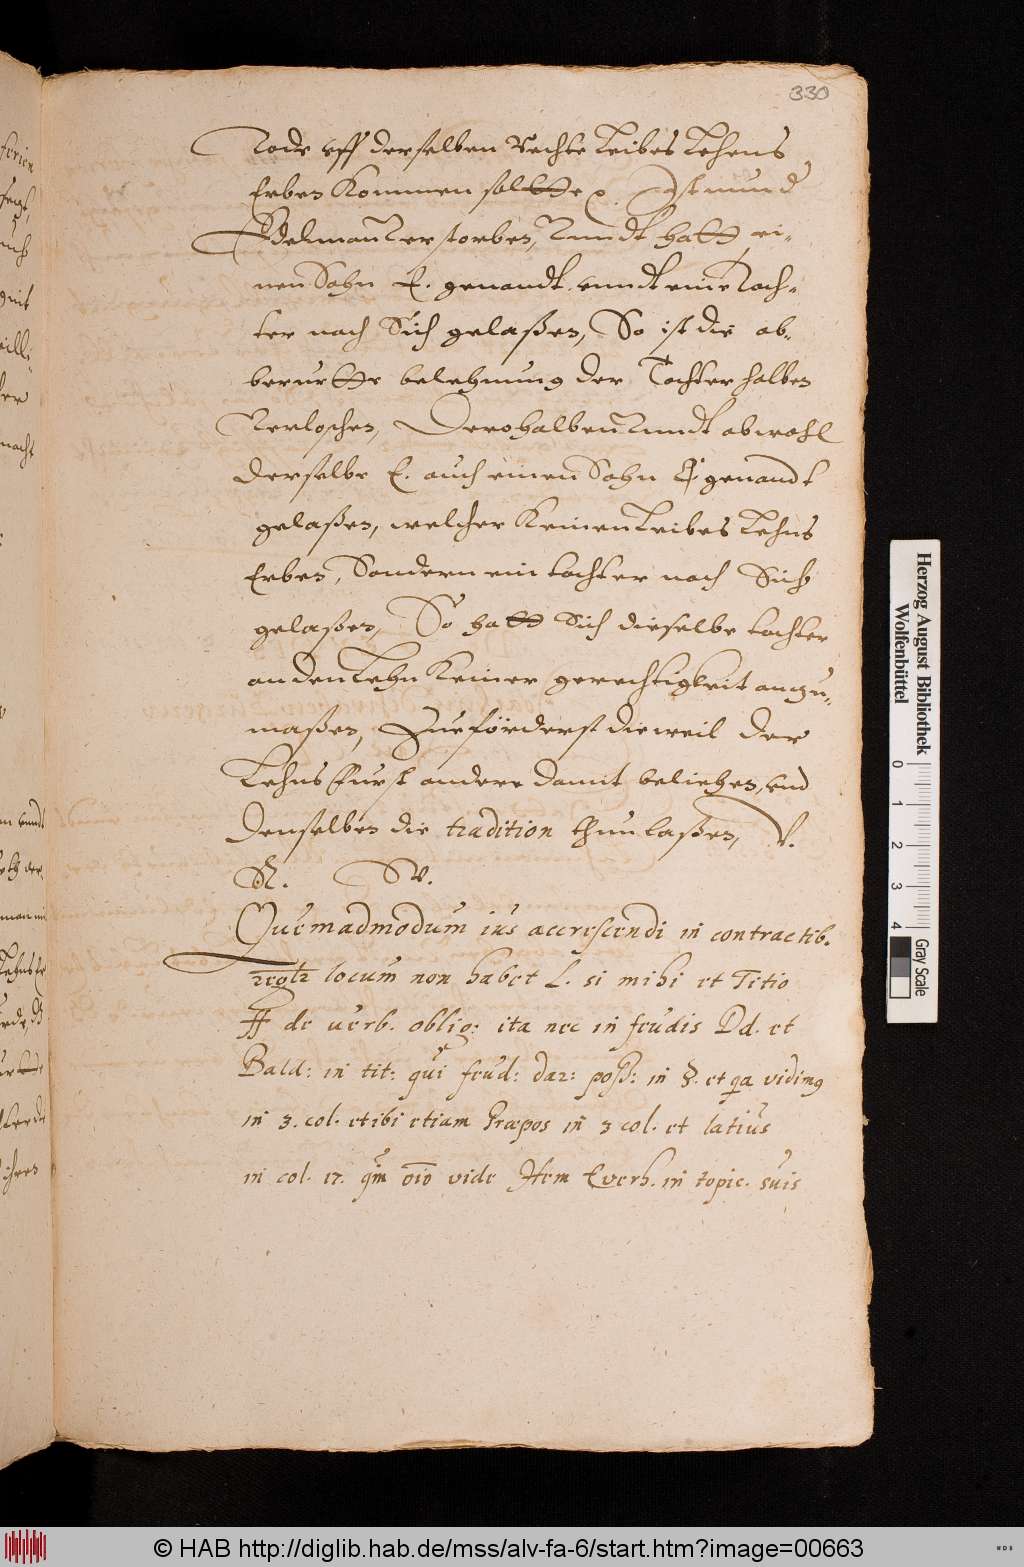 330
Tode vff derselben Rechte Leibes Lehens
Erben Kommen solte, Ist nund
Edelman Verstorben, Vnndt hatt ei-
nen Sohn E. genandt, vnndt eine Toch-
ter nach Sich gelaßen, So ist die ab-
berurtte belehnung der Tochter halben
Verloschen, Derohalben Vnndt obwohl
derselbe E. auch einen Sohn genandt
gelaßen, welcher Keinen Leibes Lehns
Erben, Sondern ein tochter nach Sich
gelaßen, So hatt Sich dieselbe tochter
an den Lehn Keiner gerechtigkeit anzu-
maßen, Zueförderst dieweil der
Lehns Furst andere damit beliehen, vnd
Denselben die tradition thun laßen, V.
R. W.
Quemadmodum ius accrescendi in contractib.
reglr locum non habet L. si mihi et Titio
ff de uerb. oblig: ita nec in feudis Dd. et
Bald: in tit: qui feud: dar: poss: in §. et qa vidimus
in 3. col. et ibi etiam Præpos in 3 col. et latius
in col. 17. qm oio vide Item Everh. in topic. suis
Herzog August Bibliothek
Wolfenbüttel
0 1 2 3 4
Gray Scale
© HAB http://diglib.hab.de/mss/alv-fa-6/start.htm?image=00663